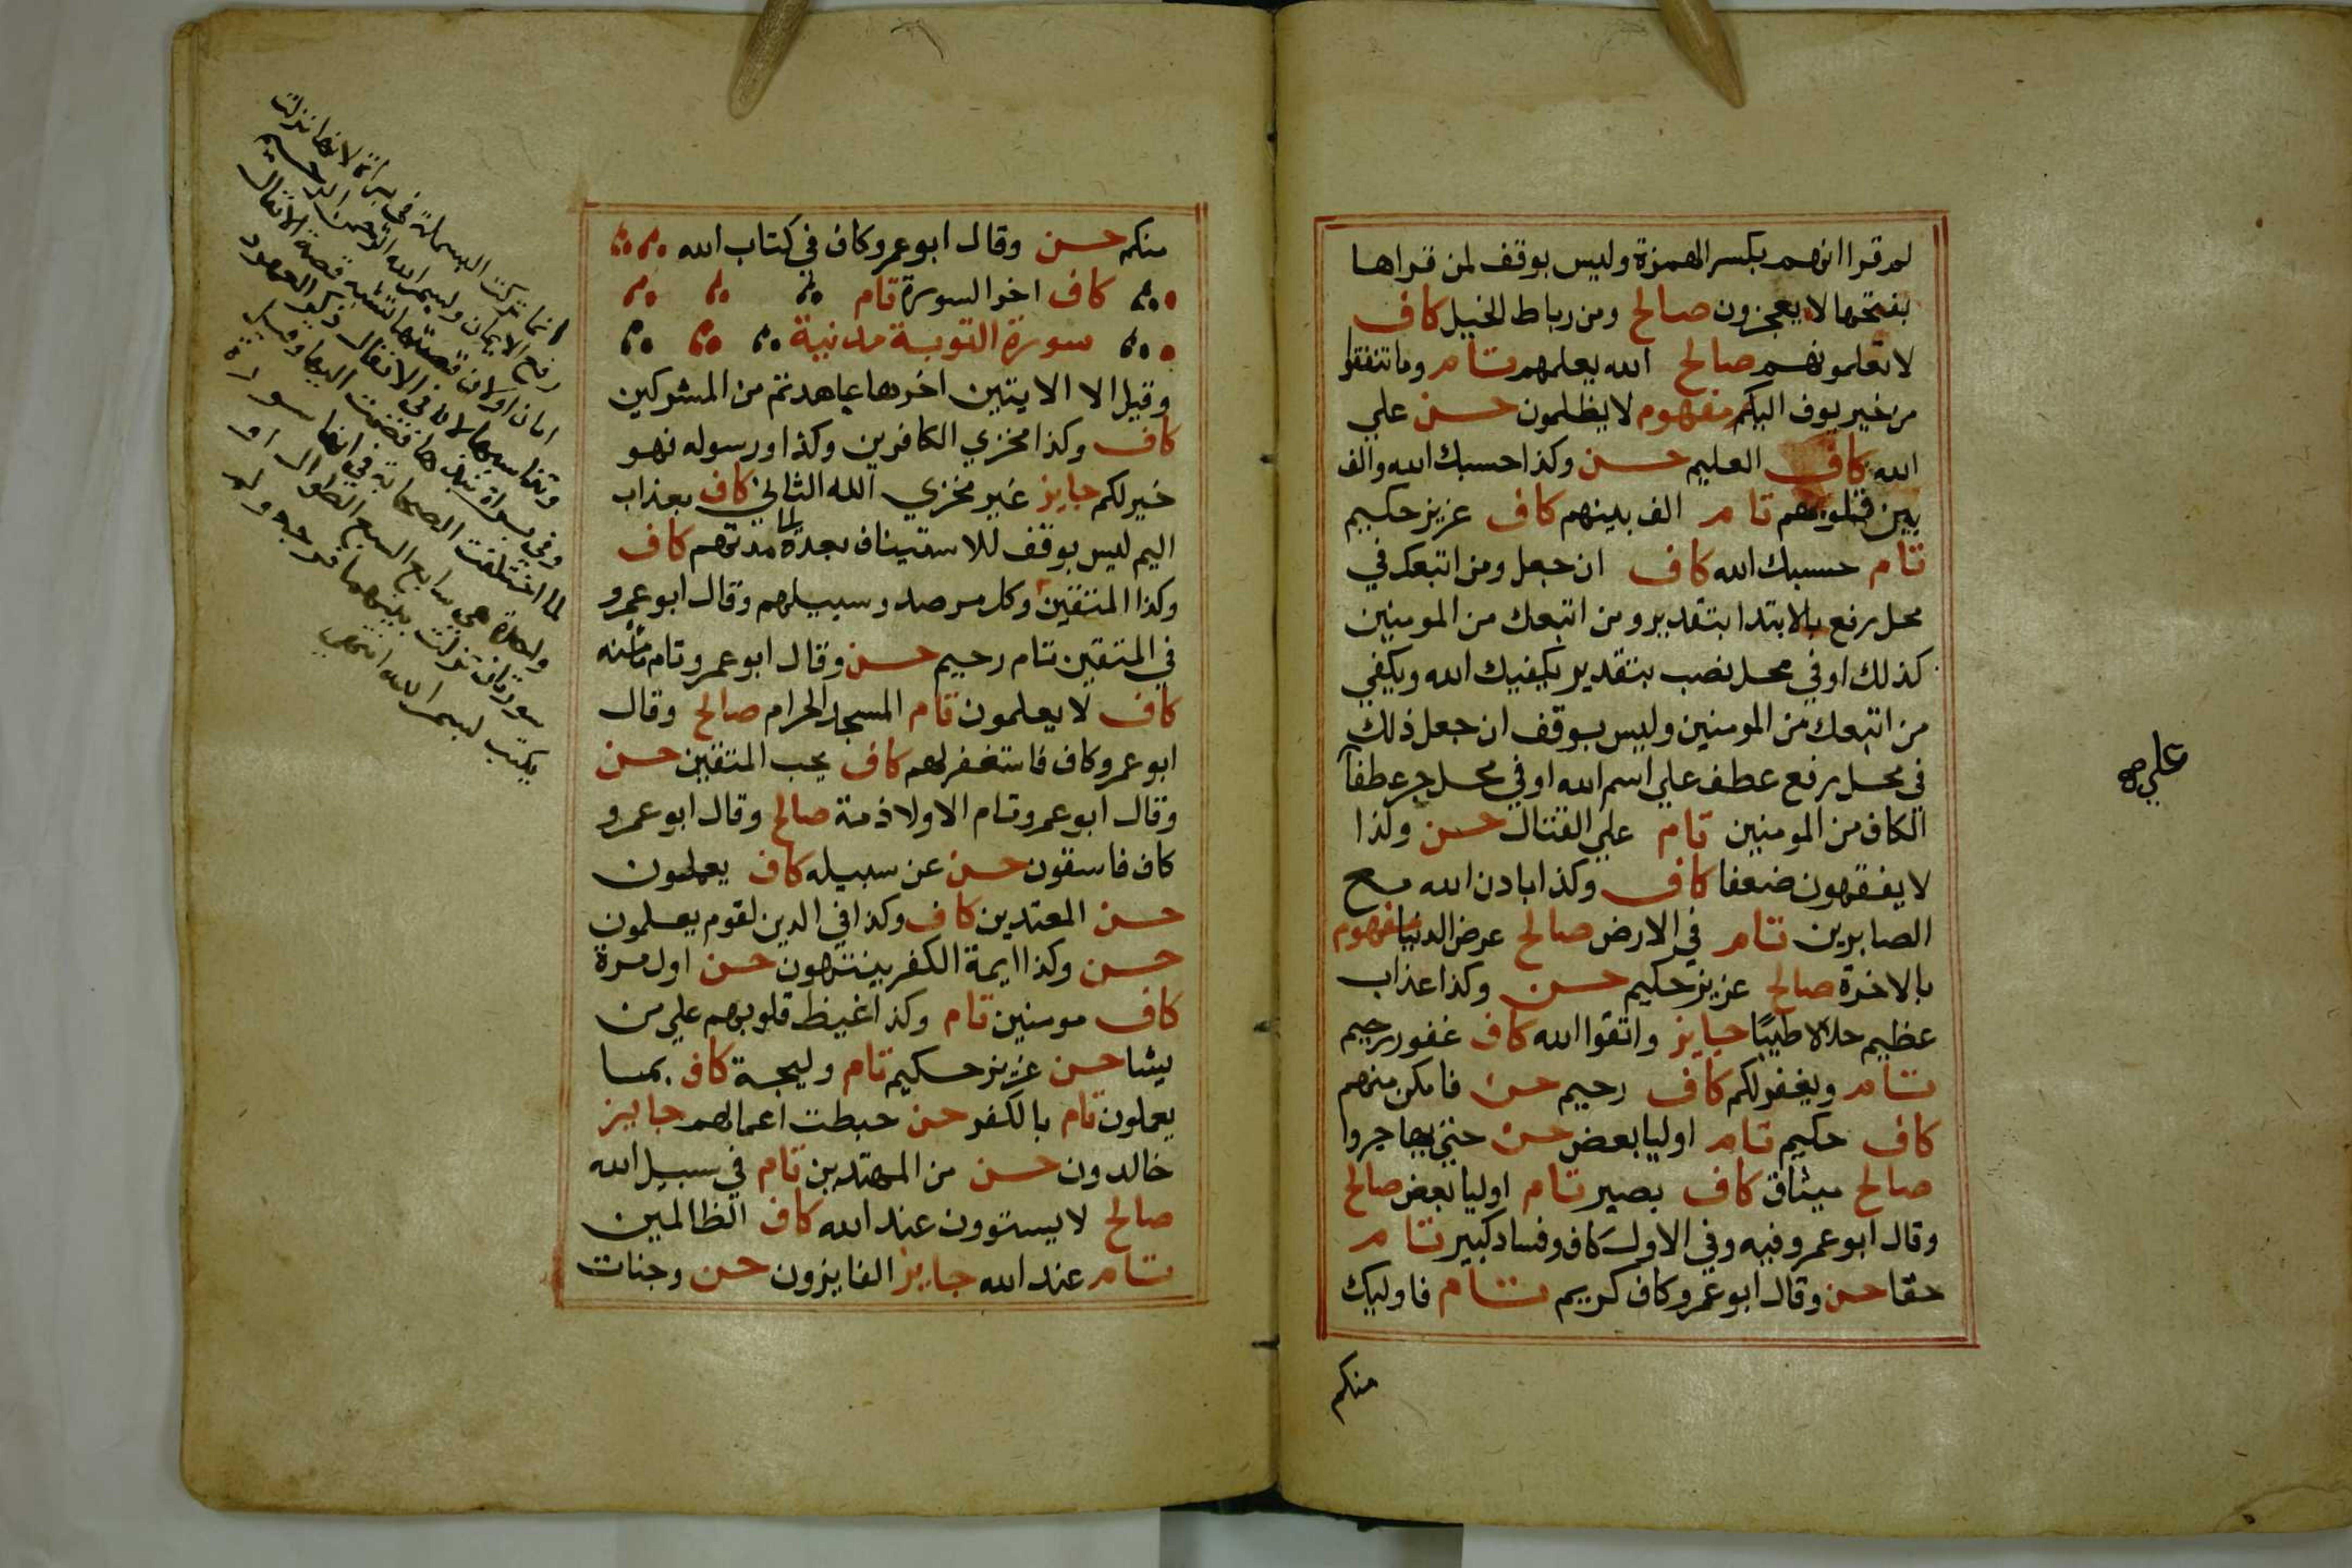 لم قرا انهم بكسر الهمزة وليس بوقف لمن قراها
بفتحها لا يعجزون صالح ومن رباط الخيل كاف
لا تعلمونهم صالح الله يعلمهم تام وما تنفقوا
من خير يوف اليكم مفهوم لا يظلمون حسن علي
الله كاف العليم حسن وكذا حسبك الله والف
بين قلوبهم تام الف بينهم كاف عزيز حكيم
تام حسبك الله كاف ان جعل ومن اتبعك في
محل رفع بالابتدا بتقدير ومن اتبعك من المومنين
كذلك او في محل نصب بتقدير يكفيك الله ويكفي
من اتبعك من المومنين وليس بوقف ان جعل ذلك
في محل رفع عطف علي اسم الله او في محل جر عطفا
الكاف من المومنين تام علي القتال حسن وكذا
لا يفقهون ضعفا كاف وكذا باذن الله مع
الصابرين تام في الارض صالح عرض الدنيا مفهوم
بالاخرة صالح عزيز حكيم حسن وكذا عذاب
عظيم حلالا طيبا جايز واتقوا الله كاف غفور رحيم
تام ويغفر لكم كاف رحيم حسن فامكن منهم
كاف حكيم تام اوليا بعض حسن حتي يهاجروا
صالح ميثاق كاف بصير تام اوليا بعض صالح
وقال ابو عمرو فيه وفي الاول كاف وفساد كبير تام
حقا حسن وقال ابو عمرو كاف كريم تام فاوليك
منكم
علي صح
منكم حسن وقال ابو عمرو كاف في كتاب الله
كاف اخر السورة تام
سورة التوبة مدنية
وقيل الا الايتين اخرها عاهدتم من المشركين
كاف وكذا مخزي الكافرين وكذا ورسوله فهو
خير لكم جايز غير مخزي الله الثاني كاف بعذاب
اليم ليس بوقف للاستيناف بعده مدتهم كاف
وكذا المتقين وكل مرصد وسبيلهم وقال ابو عمرو
في المتقين تام رحيم حسن وقال ابو عمرو تام مامنه
كاف لا يعلمون تام المسجد الحرام صالح وقال
ابو عمرو كاف فاستغفر لهم كاف يحب المتقين حسن
وقال ابو عمرو تام الا ولا ذمة صالح وقال ابو عمرو
كاف فاسقون حسن عن سبيله كاف يعملون
حسن المعتدين كاف وكذا في الدين لقوم يعلمون
حسن وكذا ايمة الكفر ينتهون حسن اول مرة
كاف مومنين تام وكذا غيظ قلوبهم علي من
يشا حسن عزيز حكيم تام وليجة كاف بما
يعملون تام بالكفر حسن حبطت اعمالهم جايز
خالدون حسن من المهتدين تام في سبيل الله
صالح لا يستوون عند الله كاف الظالمين
تام عند الله جايز الفايزون حسن وجنات
انما تركت البسملة في براة لانها نزلت
رفع الامان وبسم الله الرحمن الرحيم
امان او لان قصتها تشبه قصة الانفال
وتناسبها لان في الانفال ذكر العهود
وفي براة نبذها فضمت اليها وقيل
لما اختلفت الصحابة في انها سورة
واحدة هي سابع السبع الطوال او
سورتان تركت بينهما فرجة ولم
يكتب بسم الله انتهي